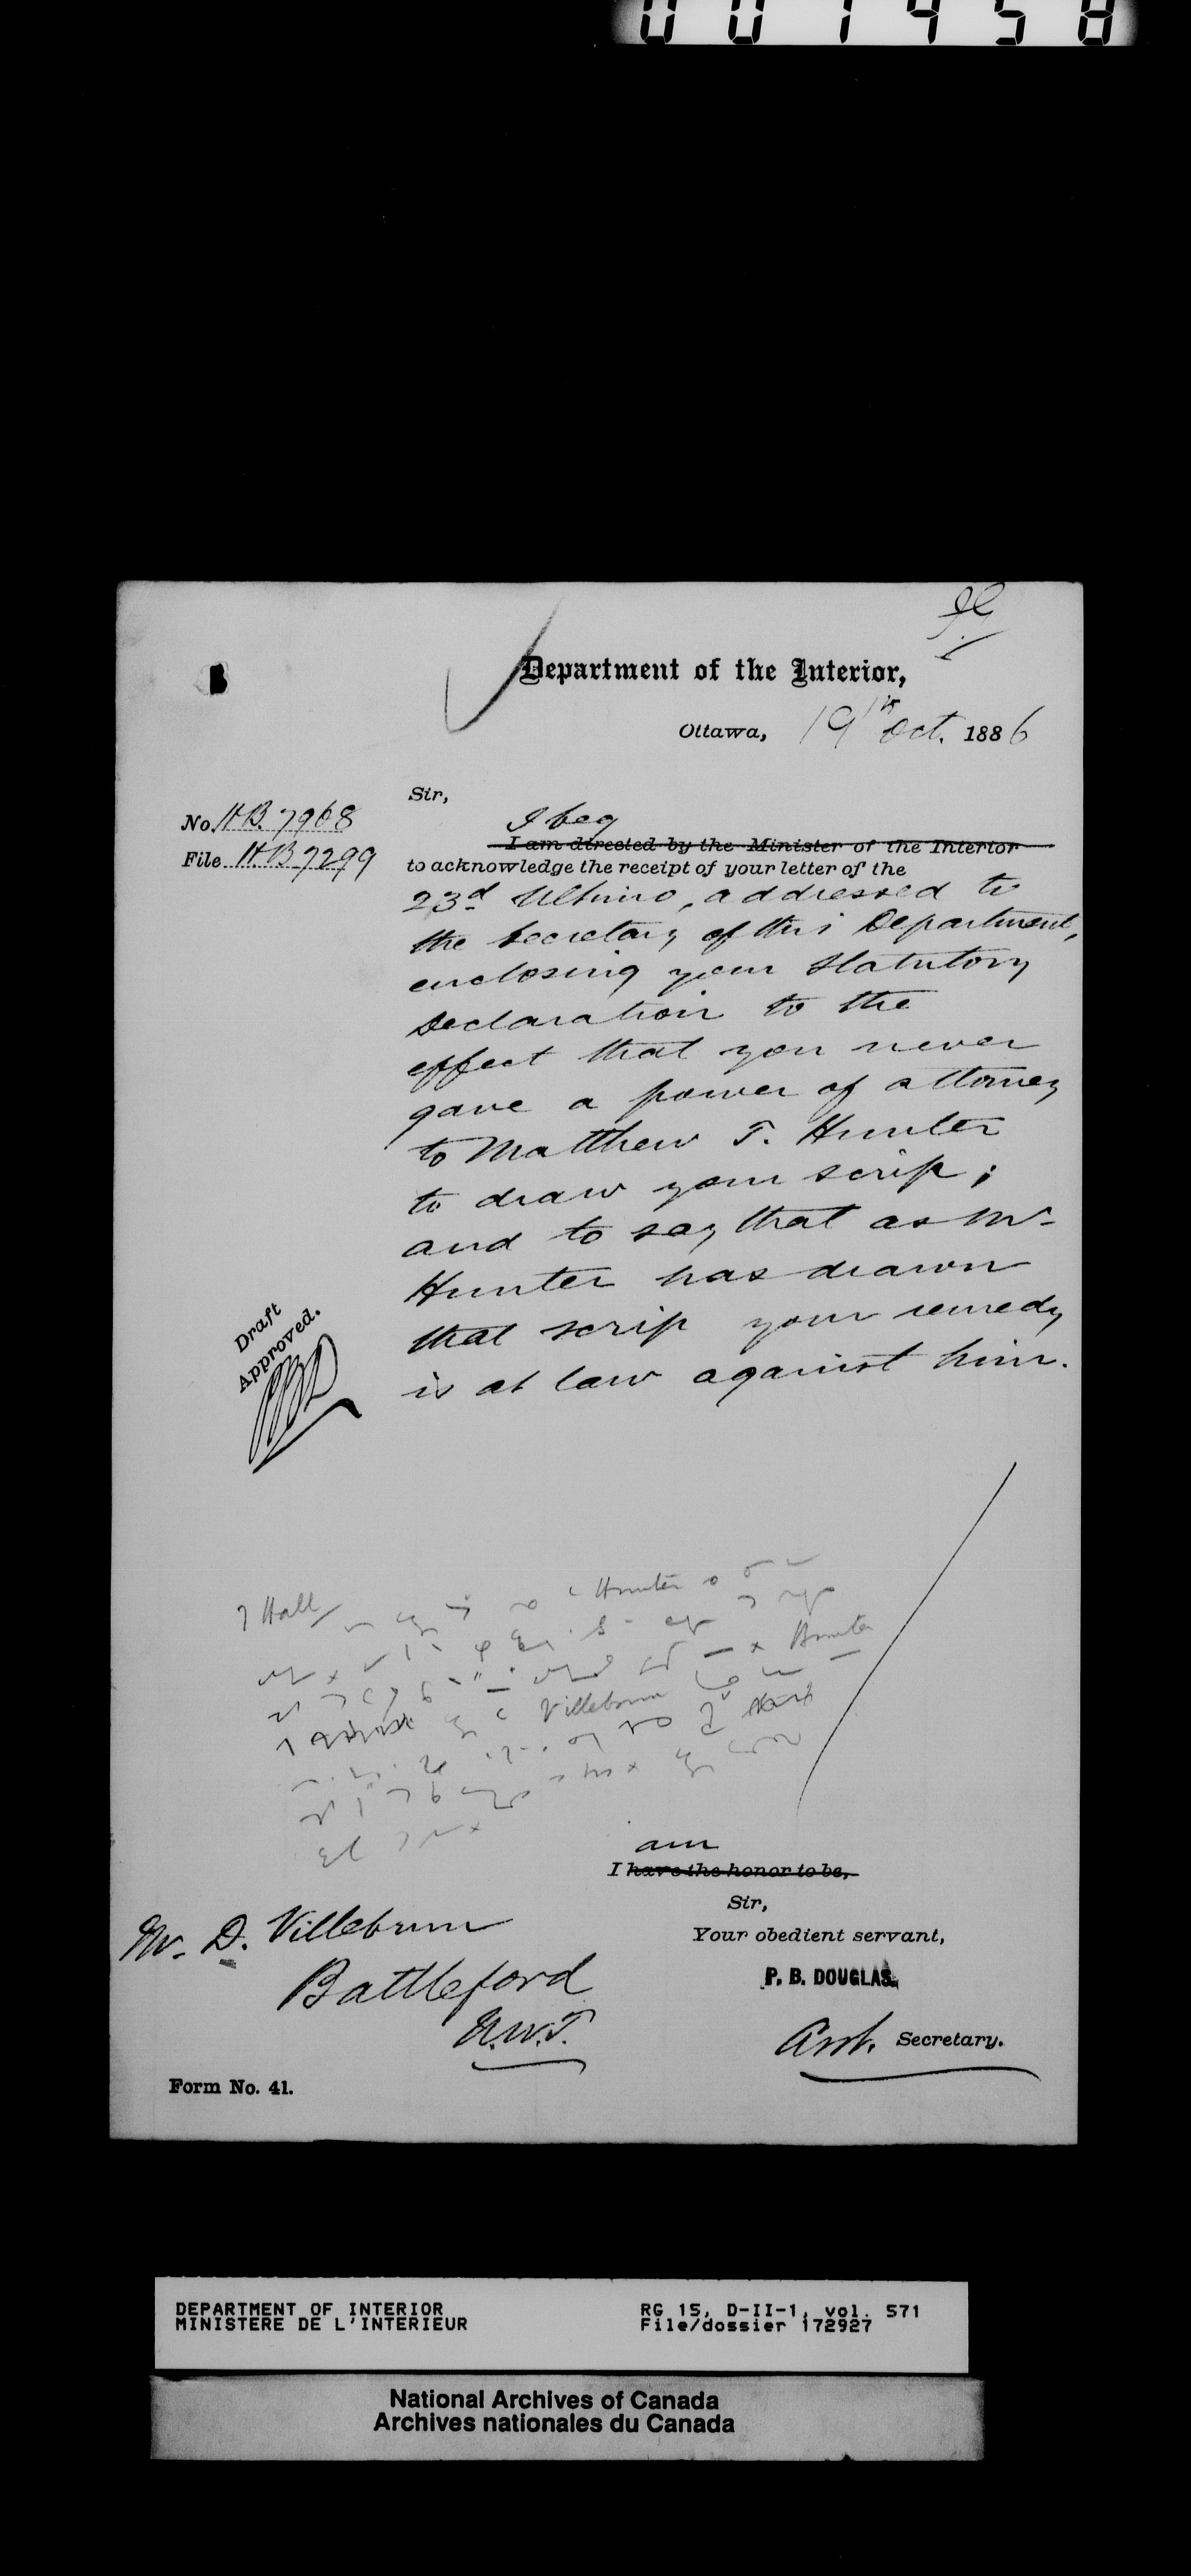 001458
Department of the Interior,
Ottawa, 19th Oct. 1886
Sir,
No. H.B. 7968
I beg
I am directed by the Minister of the Interior
File H.B 7299
to acknowledge the receipt of your letter of the
23d Ultimo, addressed to
the Secretary of this Department,
enclosing your Statutory
Declaration to the
effect that you never
gave a power of attorney
to Matthew T. Hunter
to draw your scrip;
and to say that as Mr
Hunter has drawn
that scrip your remedy
is at law against him.
Draft
Approved.
Hall
Hunter
Hunter
Villebrun
am
I have the honor to be,
Sir,
Your obedient servant,
Mr. D. Villebrun
Battleford
N.W.T.
P. B. DOUGLAS.
Asst. Secretary.
Form No. 41.
DEPARTMENT OF INTERIOR
MINISTERE DE L'INTERIEUR
RG 15, D-II-1, vol. 571
File/dossier 172927
National Archives of Canada
Archives nationales du Canada